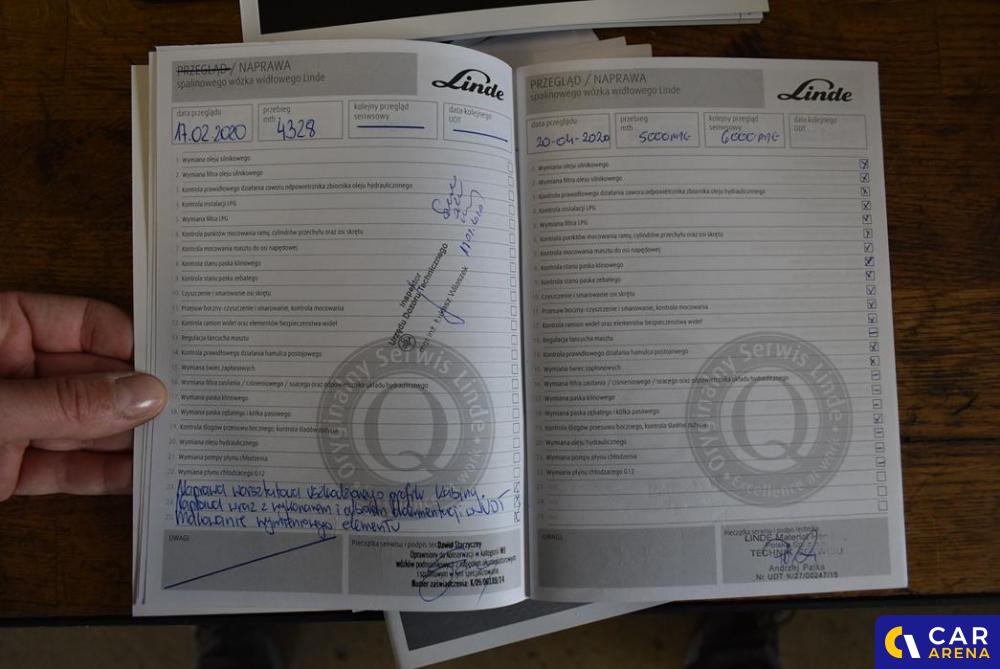 PRZEGLĄD / NAPRAWA
spalinowego wózka widłowego Linde
Linde
data przeglądu
17.02.2020
przebieg
mth
4328
kolejny przegląd
seriwsowy
data kolejnego
UDT
1. Wymiana oleju silnikowego
2. Wymiana filtra oleju silnikowego
3. Kontrola prawidłowego działania zaworu odpowietrznika zbiornika oleju hydraulicznego
4. Kontrola instalacji LPG
5. Wymiana filtra LPG
6. Kontrola punktów mocowania ramy, cylindrów przechyłu oraz osi skrętu
7. Kontrola mocowania masztu do osi napędowej
8. Kontrola stanu paska klinowego
9. Kontrola stanu paska zębatego
10. Czyszczenie i smarowanie osi skrętu
11. Przesuw boczny: czyszczenie i smarowanie, kontrola mocowania
12. Kontrola ramion wideł oraz elementów bezpieczeństwa wideł
13. Regulacja łańcucha masztu
14. Kontrola prawidłowego działania hamulca postojowego
15. Wymiana świec zapłonowych
16. Wymiana filtra zasilania / ciśnieniowego / ssącego oraz odpowietrznika układu hydraulicznego
17. Wymiana paska klinowego
18. Wymiana paska zębatego i kółka pasowego
19. Kontrola ślizgów przesuwu bocznego, kontrola śladów zużycia
20. Wymiana oleju hydraulicznego
21. Wymiana pompy płynu chłodzenia
22. Wymiana płynu chłodzącego G12
23. Naprawa warsztatowa uszkodzonego profilu kabiny.
24. Naprawa wraz z wykonaniem i odbiorem dokumentacji w UDT
25. Malowanie wymienionego elementu
Inspektor
Urzędu Dozoru Technicznego
Oryginalny Serwis Linde
Q
UWAGI
Pieczątka serwisu i podpis
Dawid Starzyczny
Uprawniony do konserwacji w kategorii
Numer zaświadczenia:
PRZEGLĄD / NAPRAWA
spalinowego wózka widłowego Linde
Linde
data przeglądu
20-04-2020
przebieg
mth
5000 mtg
kolejny przegląd
seriwsowy
6000 mtg
data kolejnego
UDT
1. Wymiana oleju silnikowego
2. Wymiana filtra oleju silnikowego
3. Kontrola prawidłowego działania zaworu odpowietrznika zbiornika oleju hydraulicznego
4. Kontrola instalacji LPG
5. Wymiana filtra LPG
6. Kontrola punktów mocowania ramy, cylindrów przechyłu oraz osi skrętu
7. Kontrola mocowania masztu do osi napędowej
8. Kontrola stanu paska klinowego
9. Kontrola stanu paska zębatego
10. Czyszczenie i smarowanie osi skrętu
11. Przesuw boczny: czyszczenie i smarowanie, kontrola mocowania
12. Kontrola ramion wideł oraz elementów bezpieczeństwa wideł
13. Regulacja łańcucha masztu
14. Kontrola prawidłowego działania hamulca postojowego
15. Wymiana świec zapłonowych
16. Wymiana filtra zasilania / ciśnieniowego / ssącego oraz odpowietrznika układu hydraulicznego
17. Wymiana paska klinowego
18. Wymiana paska zębatego i kółka pasowego
19. Kontrola ślizgów przesuwu bocznego, kontrola śladów zużycia
20. Wymiana oleju hydraulicznego
21. Wymiana pompy płynu chłodzenia
22. Wymiana płynu chłodzącego G12
Oryginalny Serwis Linde
Q
Excellence
UWAGI
Pieczątka serwisu i podpis technika
LINDE Material
TECHNIK SERWISU
Andrzej Palka
Nr UDT K/27/00247/15
CAR
ARENA